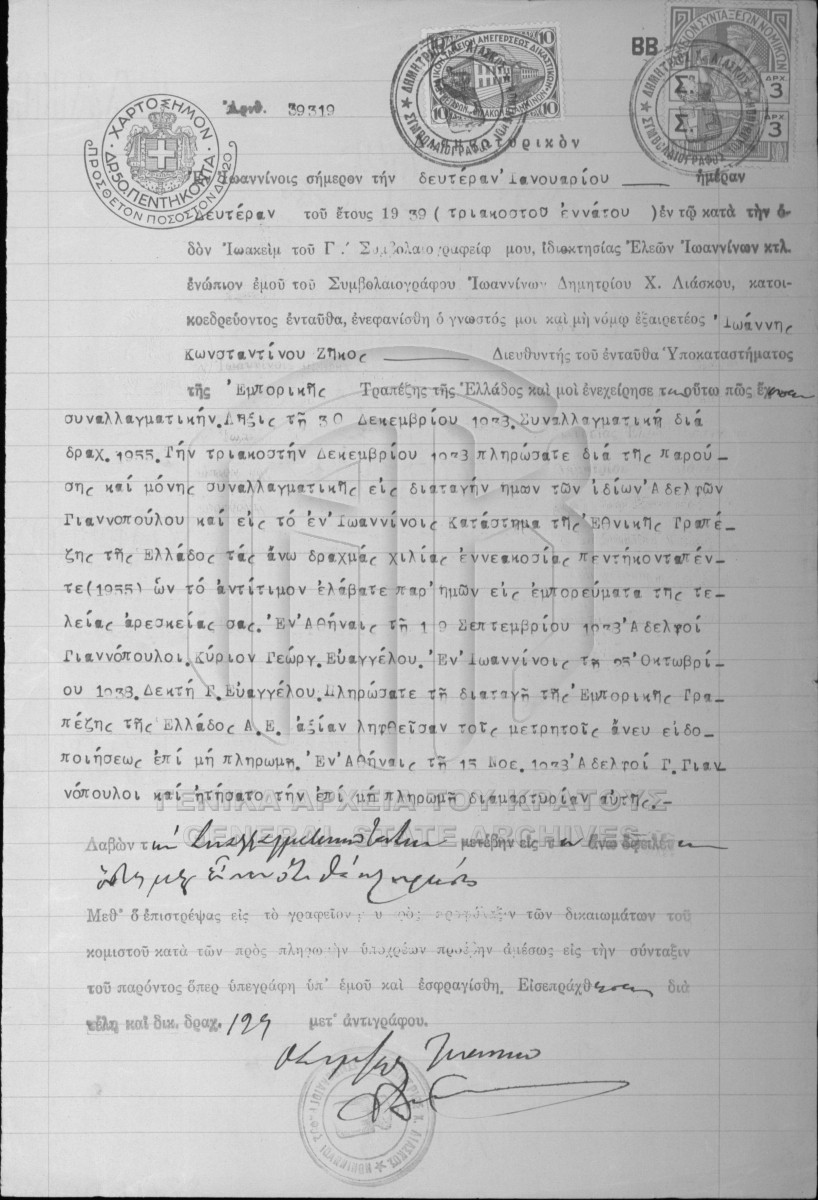 ΒΒ
Ἀριθ. 39319
ΧΑΡΤΟΣΗΜΟΝ
ΔΡ. 50. ΠΕΝΤΗΚΟΝΤΑ
ΠΡΟΣΘΕΤΟΝ ΠΟΣΟΣΤΟΝ ΔΡ. 20
10 10
10 10
ΔΡΧ. 3
3
Σ.
Σ.
Ἐν Ἰωαννίνοις σήμερον τὴν δευτέραν Ἰανουαρίου ἡμέραν
Δευτέραν τοῦ ἔτους 1939 (τριακοστοῦ ἐννάτου) ἐν τῷ κατὰ τὴν ὁ-
δὸν Ἰωακεὶμ τοῦ Γ.' Συμβολαιογραφείῳ μου, ἰδιοκτησίας Ἐλεῶν Ἰωαννίνων κτλ.
ἐνώπιον ἐμοῦ τοῦ Συμβολαιογράφου Ἰωαννίνων Δημητρίου Χ. Λιάσκου, κατοι-
κοεδρεύοντος ἐνταῦθα, ἐνεφανίσθη ὁ γνωστός μοι καὶ μὴ νόμῳ ἐξαιρετέος Ἰωάννης
Κωνσταντίνου Ζῆκος Διευθυντὴς τοῦ ἐνταῦθα Ὑποκαταστήματος
τῆς Ἐμπορικῆς Τραπέζης τῆς Ἑλλάδος καὶ μοὶ ἐνεχείρησε οὕτω πῶς ἔχουσαν
συναλλαγματικήν. Λῆξις τῇ 30 Δεκεμβρίου 1938. Συναλλαγματική διά
δραχ. 1955. Τήν τριακοστήν Δεκεμβρίου 1938 πληρώσατε διά τῆς παρού-
σης καί μόνης συναλλαγματικῆς εἰς διαταγήν ημων τῶν ἰδίων Ἀδελφῶν
Γιαννοπούλου καί εἰς τό ἐν Ἰωαννίνοις Κατάστημα τῆς Ἐθνικῆς Τραπέ-
ζης τῆς Ἑλλάδος τάς ἄνω δραχμάς χιλίας ἐννεακοσίας πεντήκονταπέν-
τε (1955) ὧν τό ἀντίτιμον ἐλάβατε παρ' ἡμῶν εἰς ἐμπορεύματα της τε-
λείας ἀρεσκείας σας. Ἐν Ἀθήναις τῇ 19 Σεπτεμβρίου 1938 Ἀδελφοί
Γιαννόπουλοι. Κύριον Γεώργ. Εὐαγγέλου. Ἐν Ἰωαννίνοις τῇ 25 Ὀκτωβρί-
ου 1938. Δεκτή Γ. Εὐαγγέλου. Πληρώσατε τῇ διαταγῇ τῆς Ἐμπορικῆς Τρα-
πέζης τῆς Ἑλλάδος Α.Ε. ἀξίαν ληφθεῖσαν τοῖς μετρητοῖς ἄνευ εἰδο-
ποιήσεως ἐπί μή πληρωμῇ. Ἐν Ἀθήναις τῇ 15 Νοε. 1938 Ἀδελφοί Γ. Γιαν-
νόπουλοι καί ᾐτήσατο τήν ἐπί μή πληρωμῇ διαμαρτυρίαν αὐτῆς.-
ΓΕΝΙΚΑ ΑΡΧΕΙΑ ΤΟΥ ΚΡΑΤΟΥΣ
GENERAL STATE ARCHIVES
Λαβὼν τὴν μετέβην εἰς τὸν ἄνω ὀφειλέτην
Μεθ' ὃ ἐπιστρέψας εἰς τὸ γραφεῖόν μου πρὸς προφύλαξιν τῶν δικαιωμάτων τοῦ
κομιστοῦ κατὰ τῶν πρὸς πληρωμὴν ὑποχρέων προέβην ἀμέσως εἰς τὴν σύνταξιν
τοῦ παρόντος ὅπερ ὑπεγράφη ὑπ' ἐμοῦ καὶ ἐσφραγίσθη. Εἰσεπράχθησαν διὰ
τέλη καὶ δικ. δραχ. 129 μετ' ἀντιγράφου.